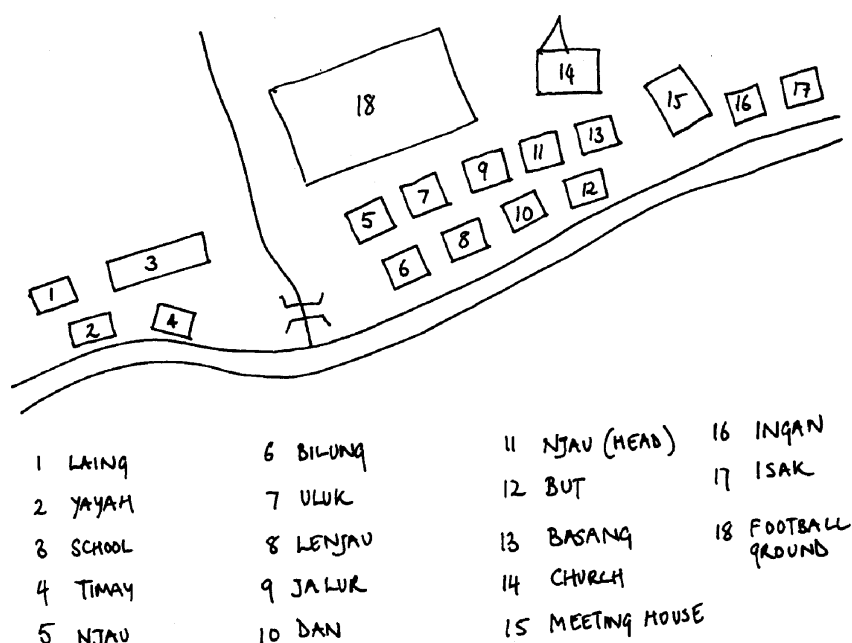 18
14
15
16
17
13
11
9
7
5
12
10
8
6
3
1
2
4
1 LAING
2 YAYAH
3 SCHOOL
4 TIMAY
5 NJAU
6 BILUNG
7 ULUK
8 LENJAU
9 JALUR
10 DAN
11 NJAU (HEAD)
12 BUT
13 BASANG
14 CHURCH
15 MEETING HOUSE
16 INGAN
17 ISAK
18 FOOTBALL
GROUND